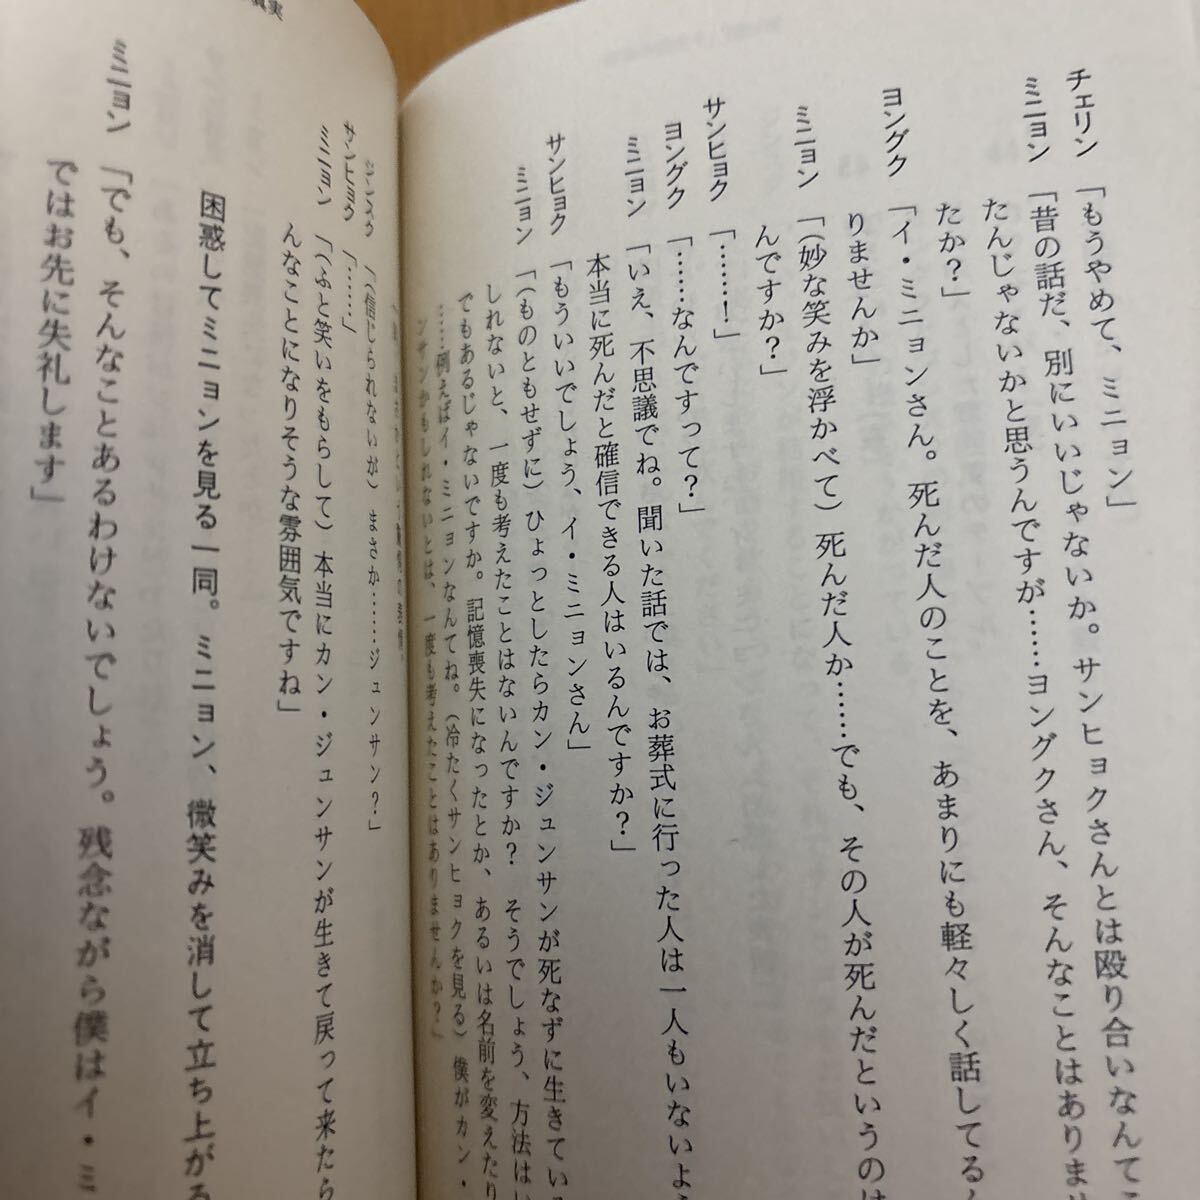 チェリン「もうやめて、ミニョン」
ミニョン「昔の話だ、別にいいじゃないか。サンヒョクさんとは殴り合いなんて
たんじゃないかと思うんですが……ヨングクさん、そんなことはありませ
たか？」
ヨングク「イ・ミニョンさん。死んだ人のことを、あまりにも軽々しく話してる
りませんか」
ミニョン「（妙な笑みを浮かべて）死んだ人か……でも、その人が死んだというのは
んですか？」
サンヒョク「……！」
ヨングク「……なんですって？」
ミニョン「いえ、不思議でね。聞いた話では、お葬式に行った人は一人もいないよう
本当に死んだと確信できる人はいるんですか？」
サンヒョク「もういいでしょう、イ・ミニョンさん」
ミニョン「（ものともせずに）ひょっとしたらカン・ジュンサンが死なずに生きている
しれないと、一度も考えたことはないんですか？　そうでしょう、方法はい
でもあるじゃないですか。記憶喪失になったとか、あるいは名前を変えたり
……例えばイ・ミニョンなんてね。（冷たくサンヒョクを見る）僕がカン・
ンサンかもしれないとは、一度も考えたことはありませんか？」
「（信じられないが）まさか……ジュンサン？」
サンヒョク「……」
ミニョン「（ふと笑いをもらして）本当にカン・ジュンサンが生きて戻って来たら
んなことになりそうな雰囲気ですね」
困惑してミニョンを見る一同。ミニョン、微笑みを消して立ち上がる
ミニョン「でも、そんなことあるわけないでしょう。残念ながら僕はイ・ミ
ではお先に失礼します」